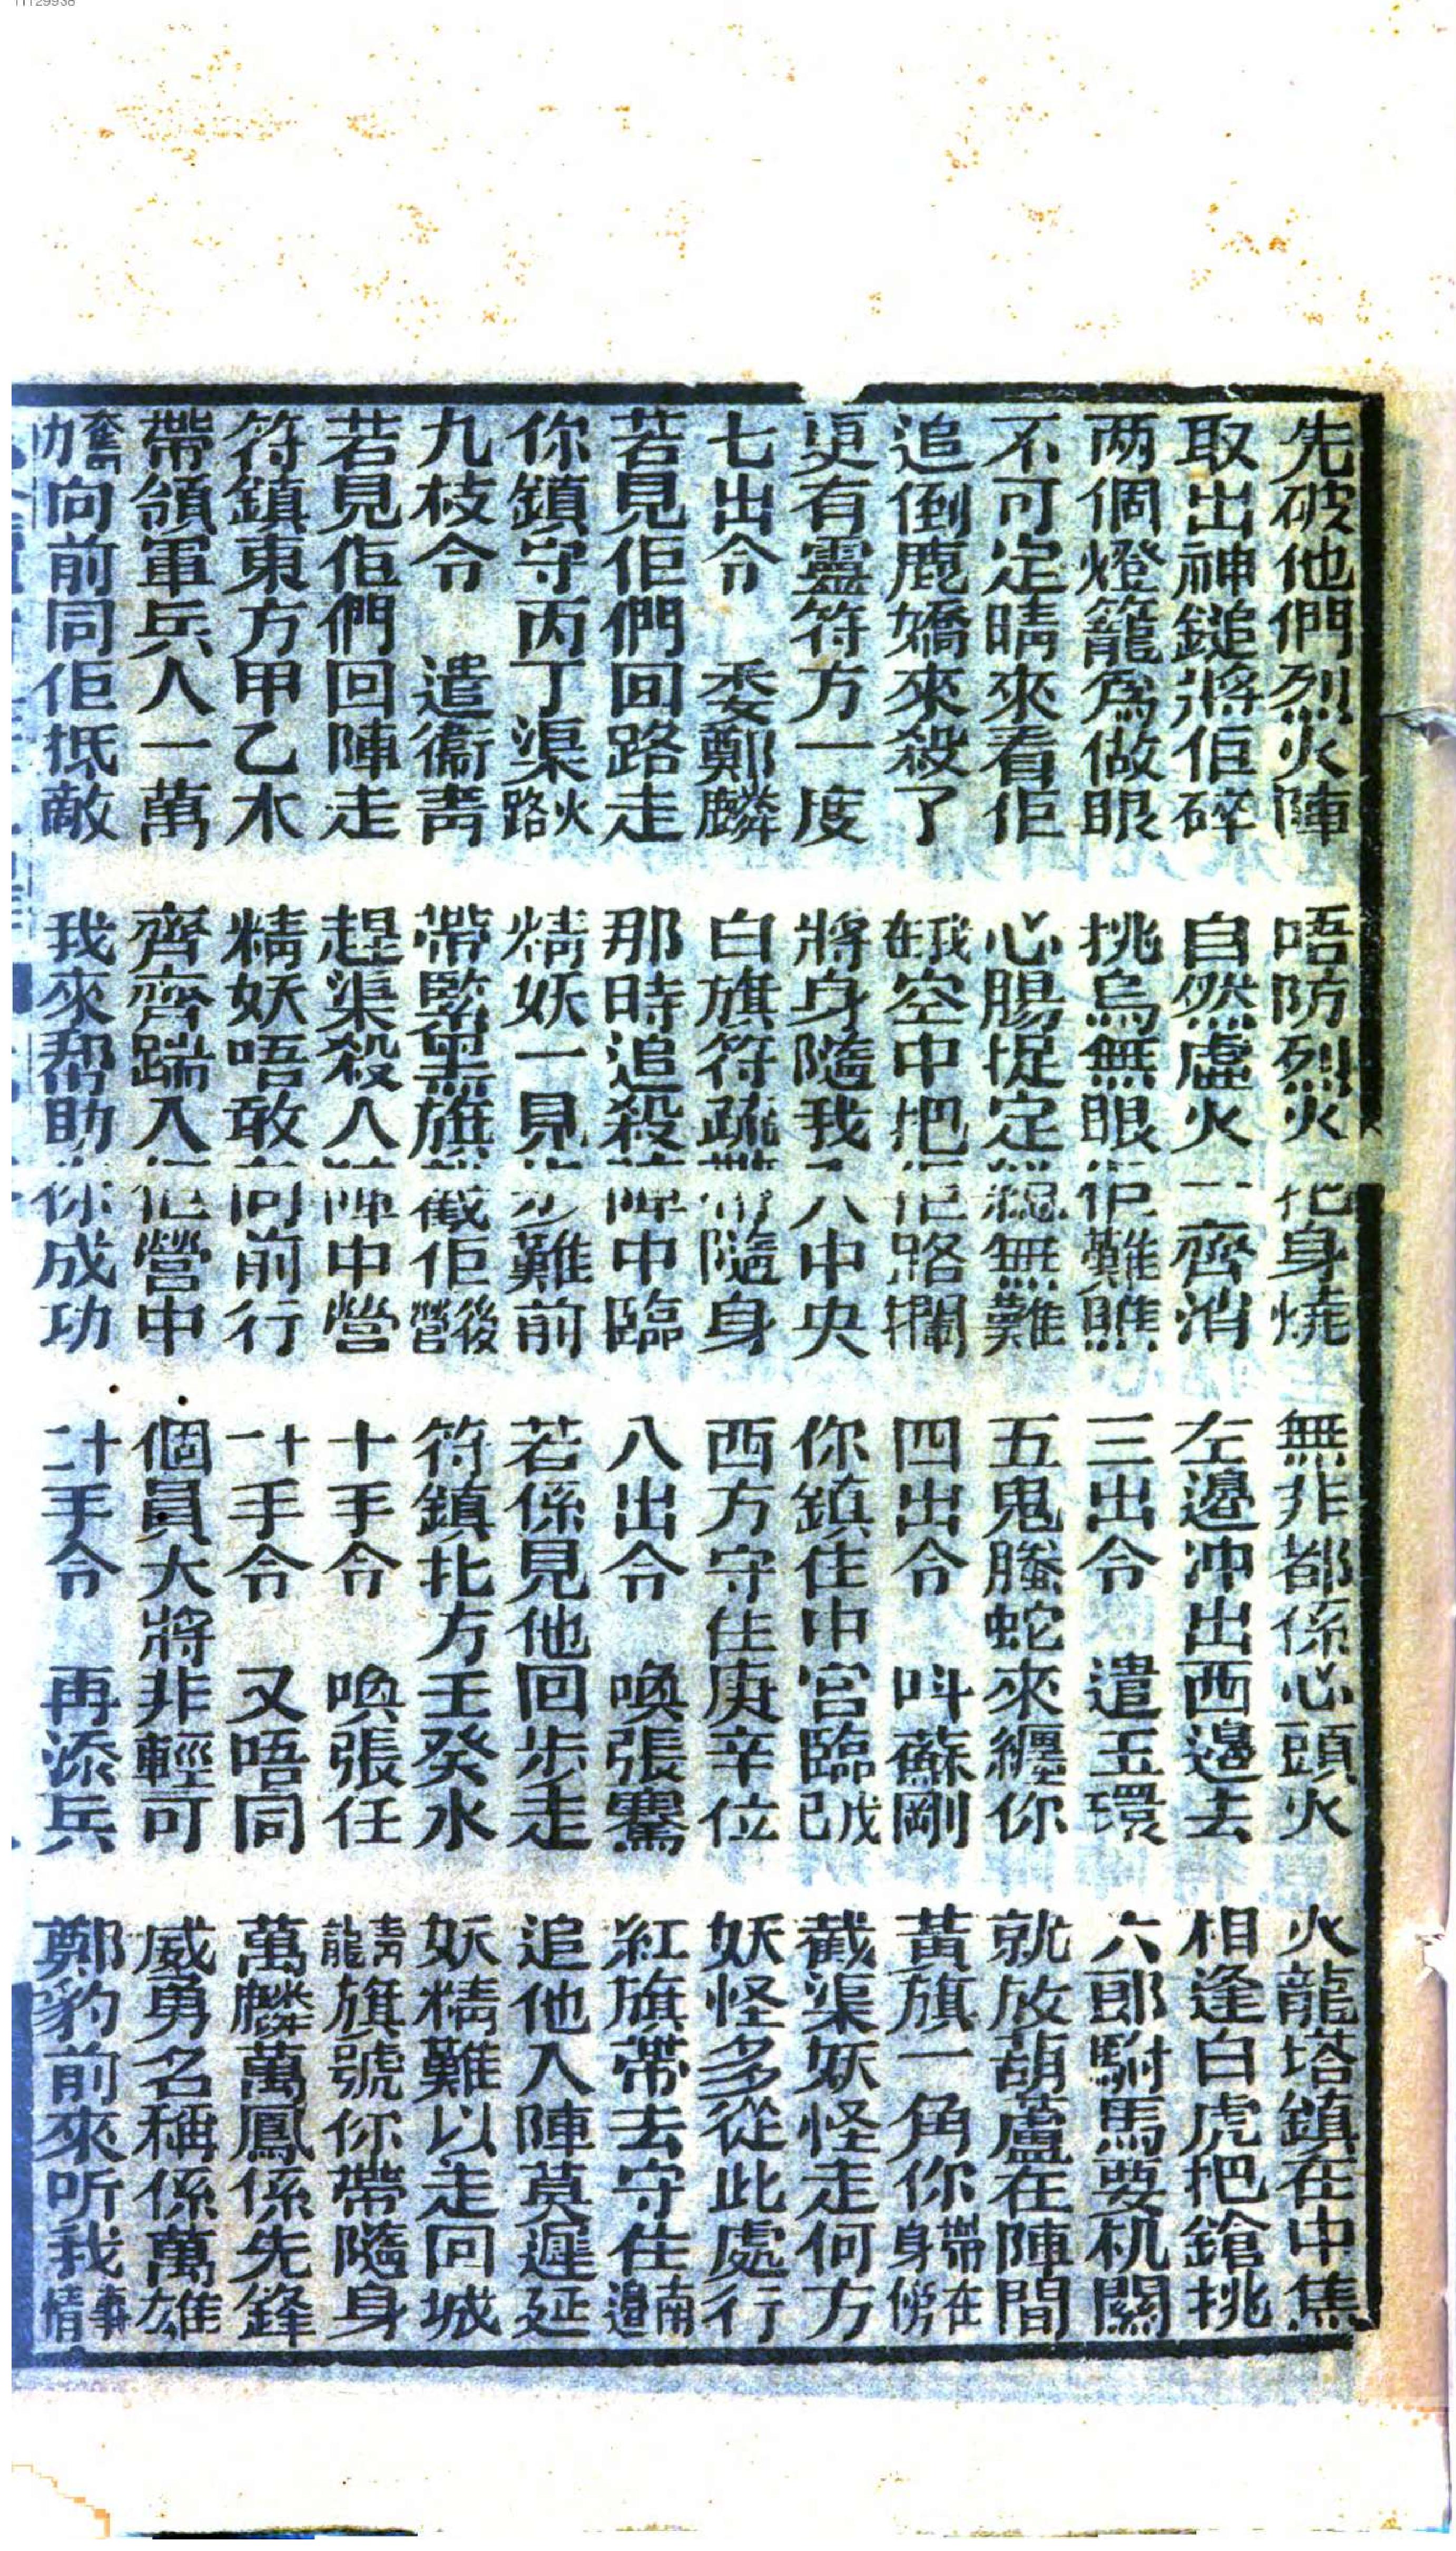 11129938
先破他們烈火陣 唔防烈火化身燒 無非都係心頭火 火龍塔鎮在中焦
取出神鎚將佢碎 自然虛火一齊消 左邊冲出西邊去 相逢白虎把鎗挑
两個燈籠為做眼 挑烏無眼佢難瞧 三出令 遣玉環 六郎駙馬要机關
不可定睛來看佢 心腸捉定總無難 五鬼螣蛇來纏你 就放葫蘆在陣間
追倒鹿嬌來殺了 我在空中把佢路攔 四出令 呌蘇剛 黃旗一角你帶身在傍
更有靈符方一度 將身隨我入中央 你鎮住中宮臨戊己 截渠妖怪走何方
七出令 委鄭麟 白旗符疏帶隨身 西方守住庚辛位 妖怪多從此處行
若見佢們回路走 那時追殺陣中臨 八出令 喚張騫 紅旗帶去守住南邊
你鎮守丙丁渠火路 精妖一見步難前 若係見他回步走 追他入陣莫遲延
九枝令 遣衞青 帶緊黑旗截佢後營 符鎮北方壬癸水 妖精難以走回城
若見佢們回陣走 趕渠殺入陣中營 十手令 喚張任 青龍旗號你帶隨身
符鎮東方甲乙木 精妖唔敢向前行 十一手令 又唔同 萬麟萬鳳係先鋒
帶領軍兵人一萬 齊齊踹入佢營中 個員大將非輕可 威勇名稱係萬雄
奮力向前同佢抵敵 我來帮助你成功 十二手令 再添兵 鄭豹前來听我事情